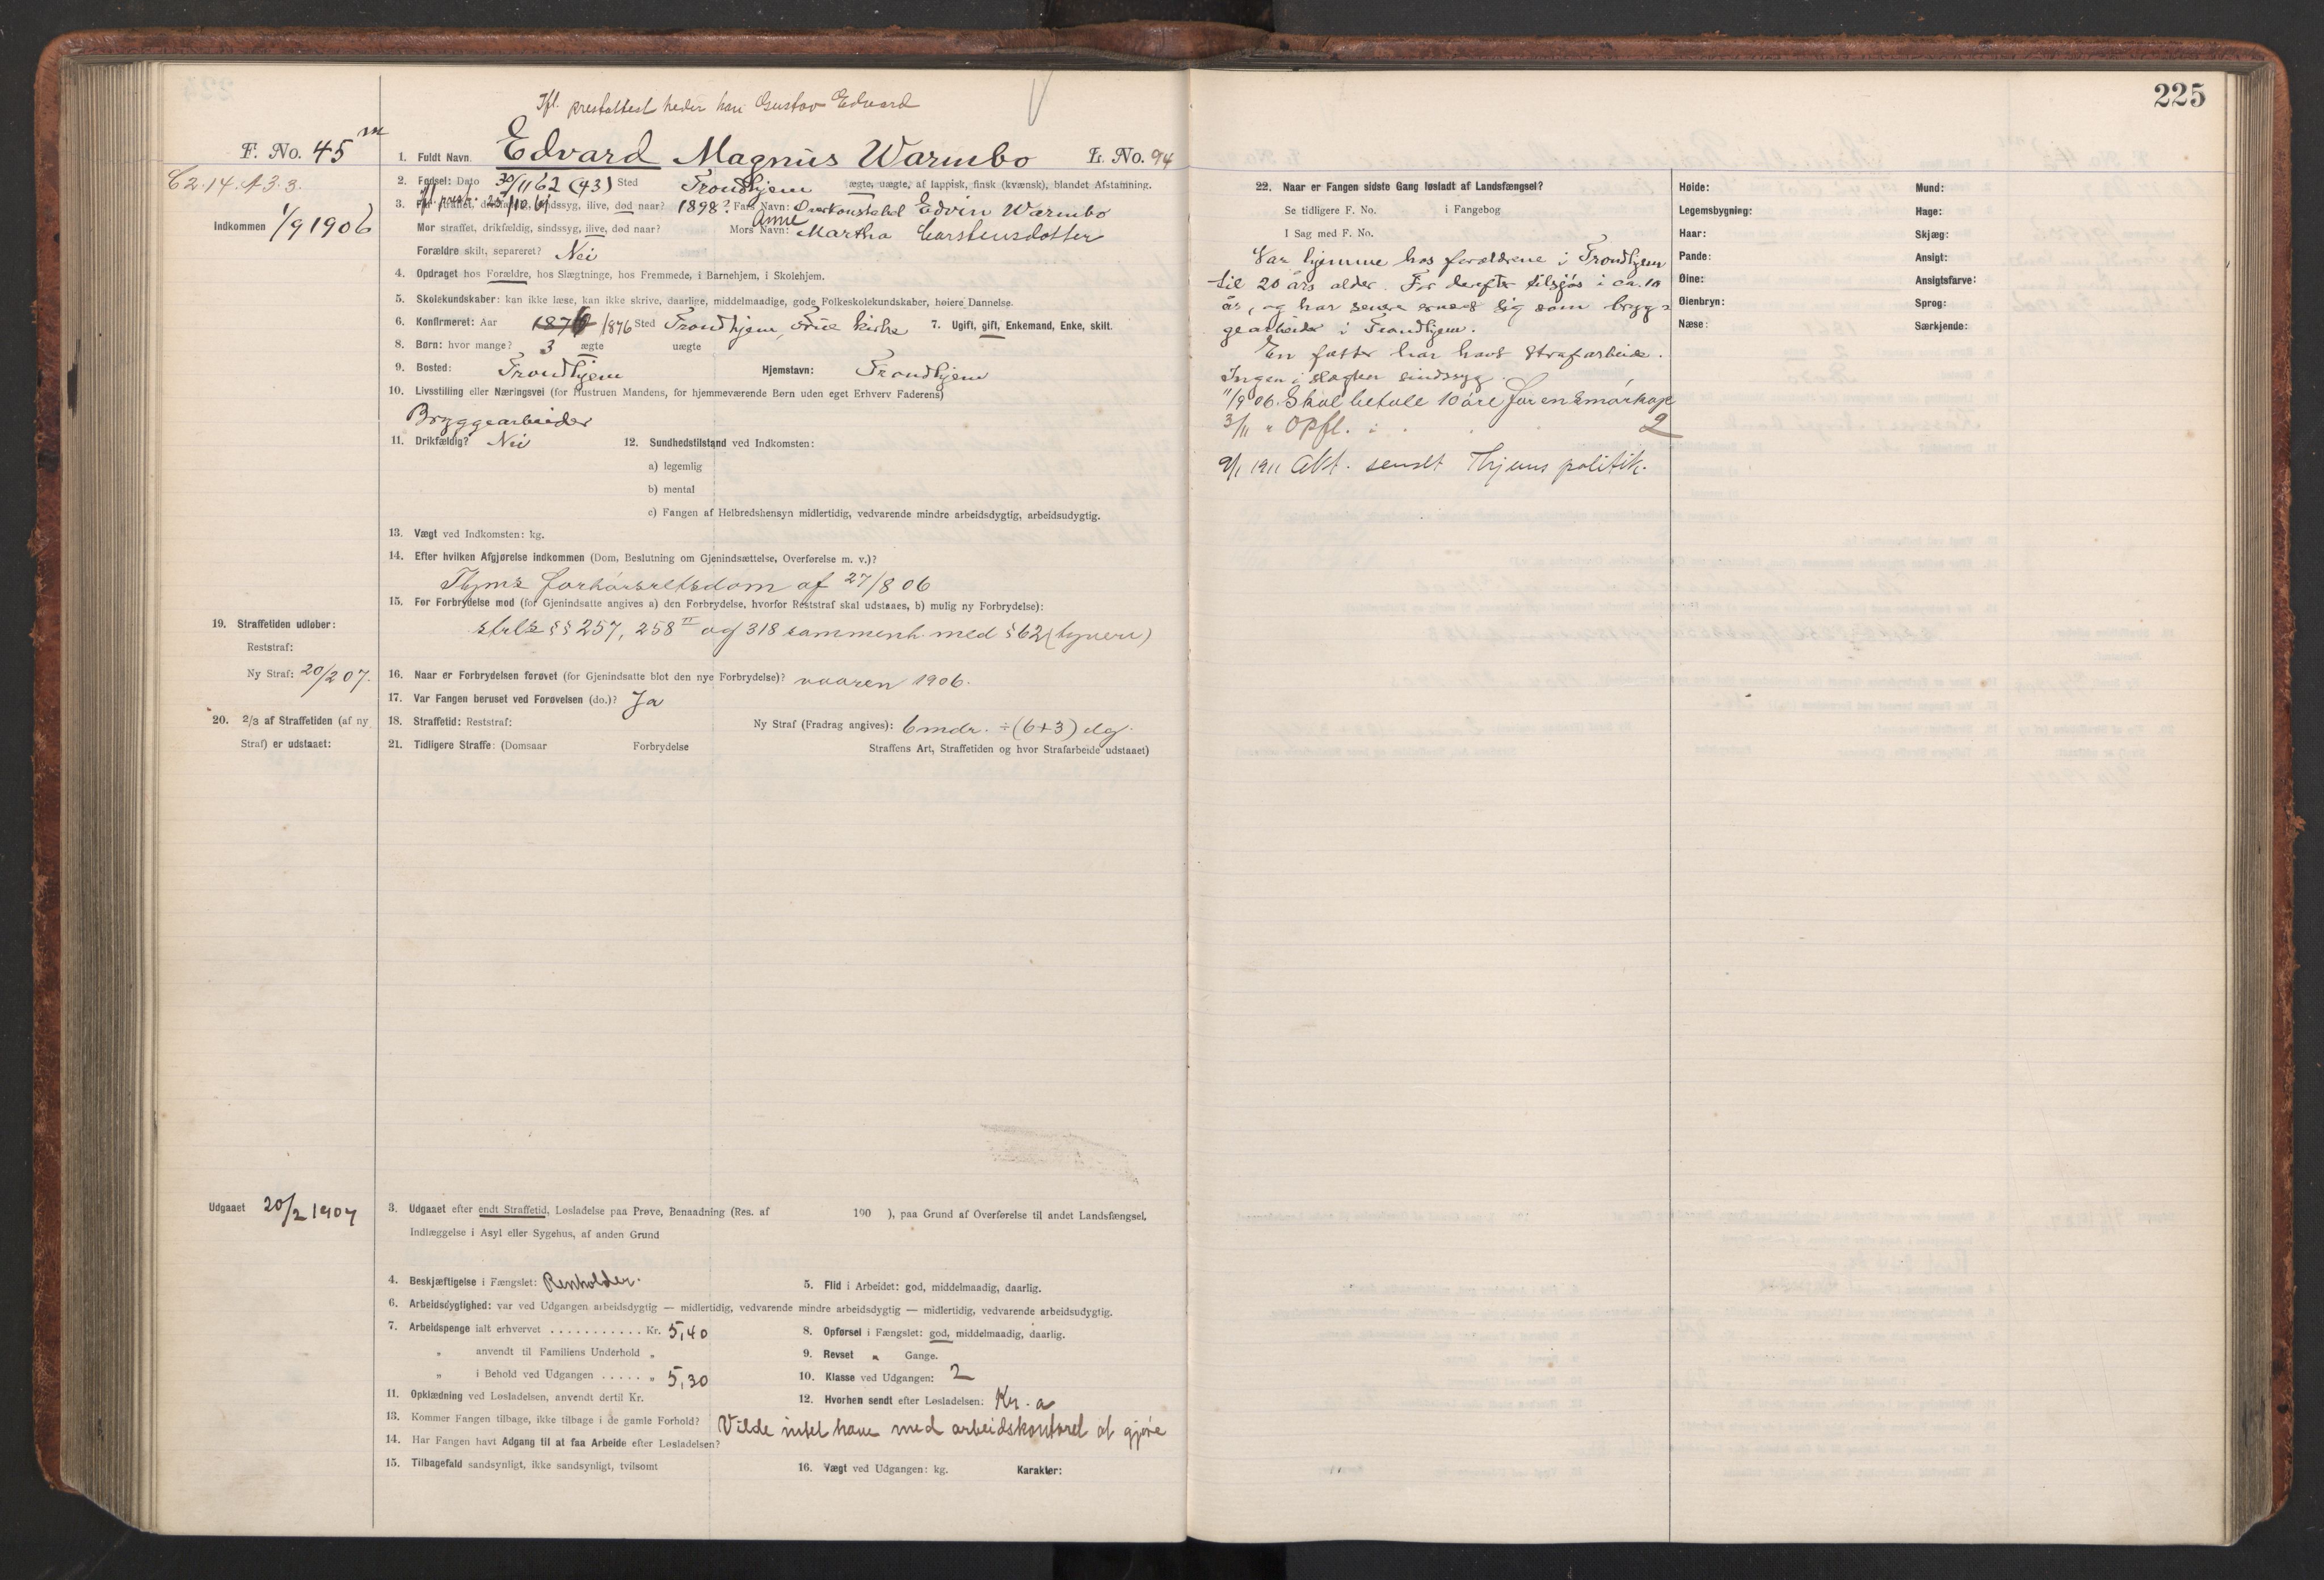 225
Ifl. prestattest heder han Gustav Edvard
F. No. 45 m
1. Fuldt Navn. Edvard Magnus Warmbo L. No. 94
C2.14. A3.3.
2. Fødsel: Dato 30/11 62 (43) Sted Trondhjem ægte, uægte, af lappisk, finsk (kvænsk), blandet Afstamning.
ifl. prest. 25/10 61
3. Far straffet, drikfældig, sindssyg, ilive, død naar? 1898? Fars Navn: Overkonstabel Edvin Warmbo
Indkommen 1/9 1906
Mor straffet, drikfældig, sindssyg, ilive, død naar? Mors Navn: Anne Martha Carstensdotter
Forældre skilt, separeret? Nei
4. Opdraget hos Forældre, hos Slægtninge, hos Fremmede, i Barnehjem, i Skolehjem.
5. Skolekundskaber: kan ikke læse, kan ikke skrive, daarlige, middelmaadige, gode Folkeskolekundskaber, høiere Dannelse.
6. Konfirmeret: Aar 1876 1876 Sted Trondhjem, Frue kirke 7. Ugift, gift, Enkemand, Enke, skilt.
8. Børn: hvor mange? 3 ægte uægte
9. Bosted: Trondhjem Hjemstavn: Trondhjem
10. Livsstilling eller Næringsvei (for Hustruen Mandens, for hjemmeværende Børn uden eget Erhverv Faderens)
Bryggearbeider
11. Drikfældig? Nei 12. Sundhedstilstand ved Indkomsten:
a) legemlig
b) mental
c) Fangen af Helbredshensyn midlertidig, vedvarende mindre arbeidsdygtig, arbeidsudygtig.
13. Vægt ved Indkomsten: kg.
14. Efter hvilken Afgjørelse indkommen (Dom, Beslutning om Gjenindsættelse, Overførelse m. v.)?
Thjms forhørsretsdom af 27/8 06
15. For Forbrydelse mod (for Gjenindsatte angives a) den Forbrydelse, hvorfor Reststraf skal udstaaes, b) mulig ny Forbrydelse):
strls §§ 257, 258 II og 318 sammenh. med § 62 (tyveri)
19. Straffetiden udløber:
Reststraf:
Ny Straf: 20/2 07.
16. Naar er Forbrydelsen forøvet (for Gjenindsatte blot den nye Forbrydelse)? vaaren 1906.
17. Var Fangen beruset ved Forøvelsen (do.)? Ja
20. 2/3 af Straffetiden (af ny Straf) er udstaaet:
18. Straffetid: Reststraf: Ny Straf (Fradrag angives): 6 mdr. ÷ (6+3) dg.
21. Tidligere Straffe: (Domsaar Forbrydelse Straffens Art, Straffetiden og hvor Strafarbeide udstaaet)
Udgaaet 20/2 1907
3. Udgaaet efter endt Straffetid, Løsladelse paa Prøve, Benaadning (Res. af 190 ), paa Grund af Overførelse til andet Landsfængsel,
Indlæggelse i Asyl eller Sygehus, af anden Grund
4. Beskjæftigelse i Fængslet: Renholder. 5. Flid i Arbeidet: god, middelmaadig, daarlig.
6. Arbeidsdygtighed: var ved Udgangen arbeidsdygtig — midlertidig, vedvarende mindre arbeidsdygtig — midlertidig, vedvarende arbeidsudygtig.
7. Arbeidspenge ialt erhvervet ........... Kr. 5,40 8. Opførsel i Fængslet: god, middelmaadig, daarlig.
„ anvendt til Familiens Underhold „ 9. Revset „ Gange.
„ i Behold ved Udgangen ..... „ 5,30 10. Klasse ved Udgangen: 2
11. Opklædning ved Løsladelsen, anvendt dertil Kr. 12. Hvorhen sendt efter Løsladelsen: Kr.a
13. Kommer Fangen tilbage, ikke tilbage i de gamle Forhold? Vilde intet have med arbeidskontoret at gjøre
14. Har Fangen havt Adgang til at faa Arbeide efter Løsladelsen?
15. Tilbagefald sandsynligt, ikke sandsynligt, tvilsomt 16. Vægt ved Udgangen: kg. Karakter:
22. Naar er Fangen sidste Gang løsladt af Landsfængsel?
Se tidligere F. No. i Fangebog
I Sag med F. No.
Var hjemme hos forældrene i Trondhjem
til 20 års alder. For derefter tilsjøs i ca. 10
år, og har senere ernæret sig som brygg-
gearbeider i Trondhjem.
En fætter har havt strafarbeide.
Ingen i slægten sindssyg.
11/9 06. Skal betale 10 øre for en smørkop
3/11 " Opfl. 2
9/1 1911 Akt. sendt Thjems politik.
Høide: Mund:
Legemsbygning: Hage:
Haar: Skjæg:
Pande: Ansigt:
Øine: Ansigtsfarve:
Øienbryn: Sprog:
Næse: Særkjende: